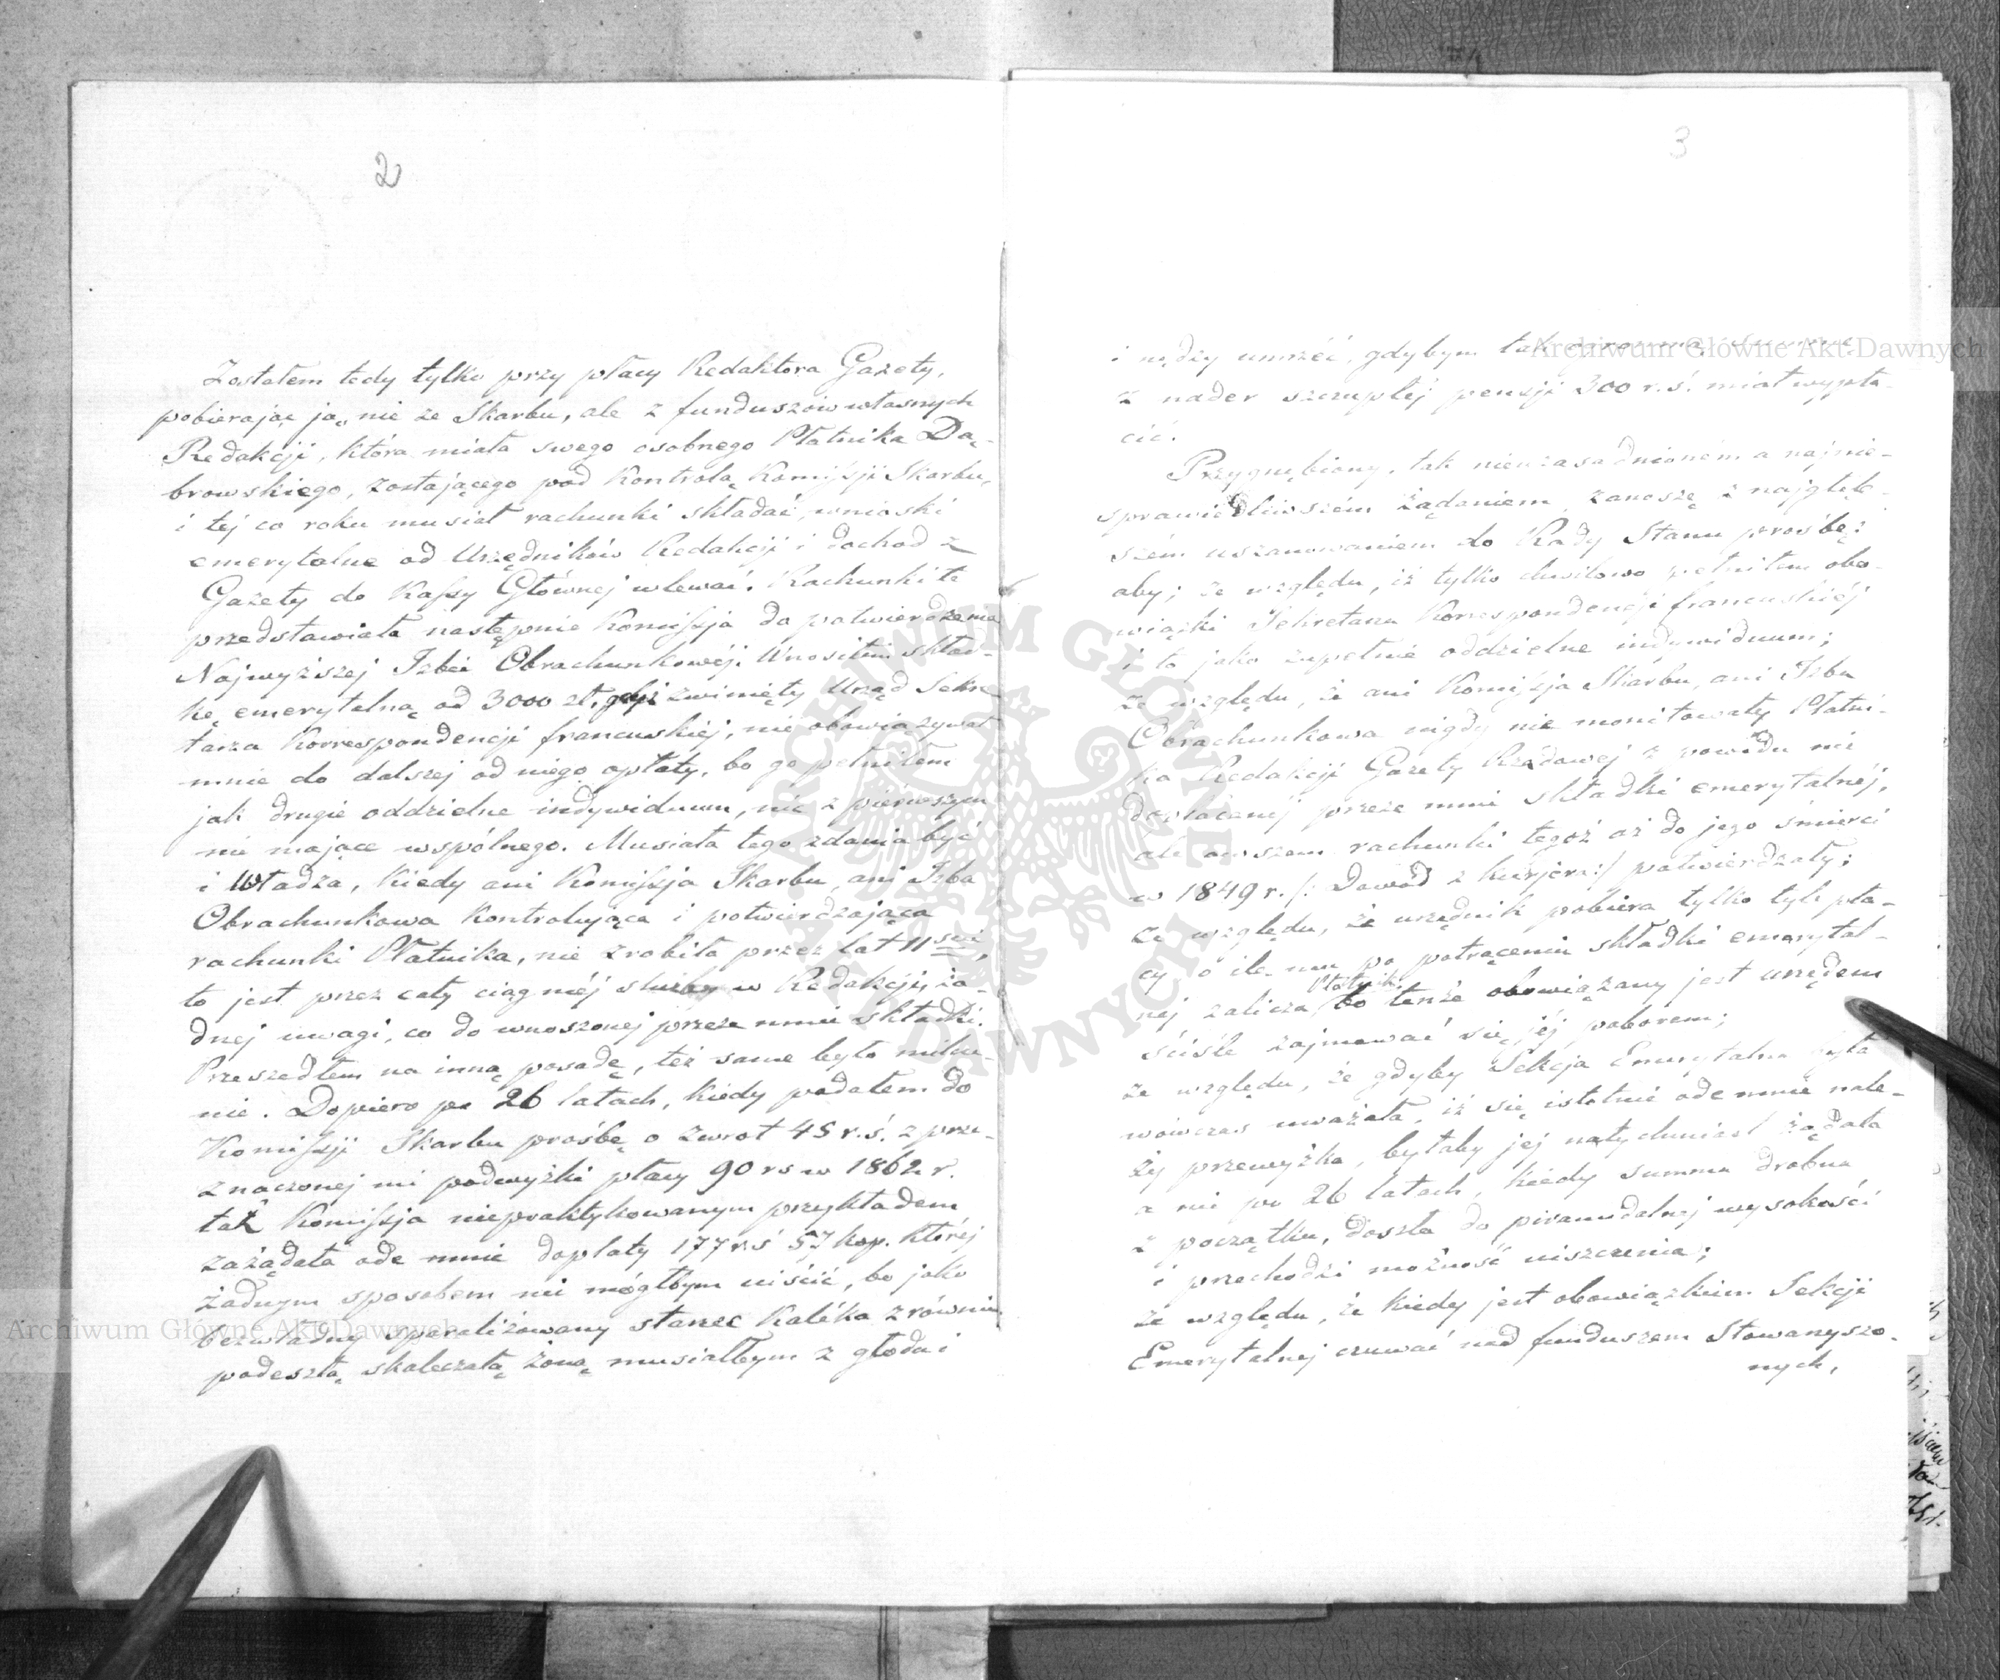 2
Zostałem tedy tylko przy płacy Redaktora Gazety,
pobierając ją, nie ze Skarbu, ale z funduszów własnych
Redakcji, która miała swego osobnego Płatnika Dą-
browskiego, zostającego pod Kontrolą Komissji Skarbu,
i tej co roku musiał rachunki składać, wnioski
emerytalne od Urzędników Redakcji i dochod z
Gazety do Kassy Głównej wlewać. Rachunki te
przedstawiała następnie Komissja do potwierdzenia
Najwyższej Izbie Obrachunkowéj. Wnosiłem skład-
kę emerytalną od 3000 zł, gdyż zwinięty Urząd Sekre
tarza Korrespondencji francuskiéj, nie obowiązywał
mnie do dalszej od niego opłaty, bo go pełniłem
jak drugie oddzielne indywiduum, nic z pierwszym
nie mające wspólnego. Musiała tego zdania być
i Władza, kiedy ani Komissja Skarbu, ani Izba
Obrachunkowa Kontrolująca i potwierdzająca
rachunki Płatnika, nie zrobiła przez lat 11
to jest przez cały ciąg méj służby w Redakcji, ża-
dnej uwagi, co do wnoszonej przeze mnie składki.
Przeszedłem na inną posadę, też same było milcze-
nie. Dopiero po 26 latach, kiedy podałem do
Komissji Skarbu prośbę o zwrot 45 r. ś. z prze-
znaczonej mi podwyżki płacy 90 rs w 1862 r.
taż Komissja niepraktykowanym przykładem
zażądała ode mnie dopłaty 177 r ś 57 kop. któréj
żadnym sposobem nie mógłbym uiścić, bo jako
bezwładny sparaliżowany starzec Kaléka zrównie
podeszłą, skaleczałą żoną musiałbym z głodu i
3
i nędzy umrzéć, gdybym tak ogromną summę
z nader szczupłéj pensji 300 r. ś. miał wypła-
cić.
Przygnębiony, tak nieuzasadnioném a najnie-
sprawiedliwszém żądaniem, zanoszę z najgłęb-
szém uszanowaniem do Rady Stanu prośbę:
aby; ze względu, iż tylko chwilowo pełniłem obo-
wiązki Sekretarza Korrespondencji francuskiéj
i to jako zupełnie oddzielne indywiduum;
ze względu, że ani Komissja Skarbu, ani Izba
Obrachunkowa nigdy nie monitowały Płatni-
ka Redakcji Gazety Rządowej z powodu nie
dopłaconej przeze mnie składki emerytalnéj,
ale owszem rachunki tegoż aż do jego śmierci
w 1849 r. /: Dowód z Kurjera:/ potwierdzały;
ze względu, że urzędnik pobiera tylko tyle pła-
cy o ile mu po potrąceniu składki emerytal-
nej zalicza Płatnik bo tenże obowiązany jest urzędem
ściśle zajmować się jéj poborem;
ze względu, że gdyby Sekcja Emerytalna była
wówczas uważała, iż się istotnie ode mnie nale-
ży przewyżka, byłaby jej natychmiast żądała
a nie po 26 latach, kiedy summa drobna
z początku, doszła do piramidalnej wysokości
i przechodzi możność uiszczenia;
ze względu, że kiedy jest obowiązkiem Sekcji
Emerytalnej czuwać nad funduszem Stowarzyszo-
nych,
Archiwum Główne Akt Dawnych
Archiwum Główne Akt Dawnych
ARCHIWUM GŁÓWNE
AKT DAWNYCH